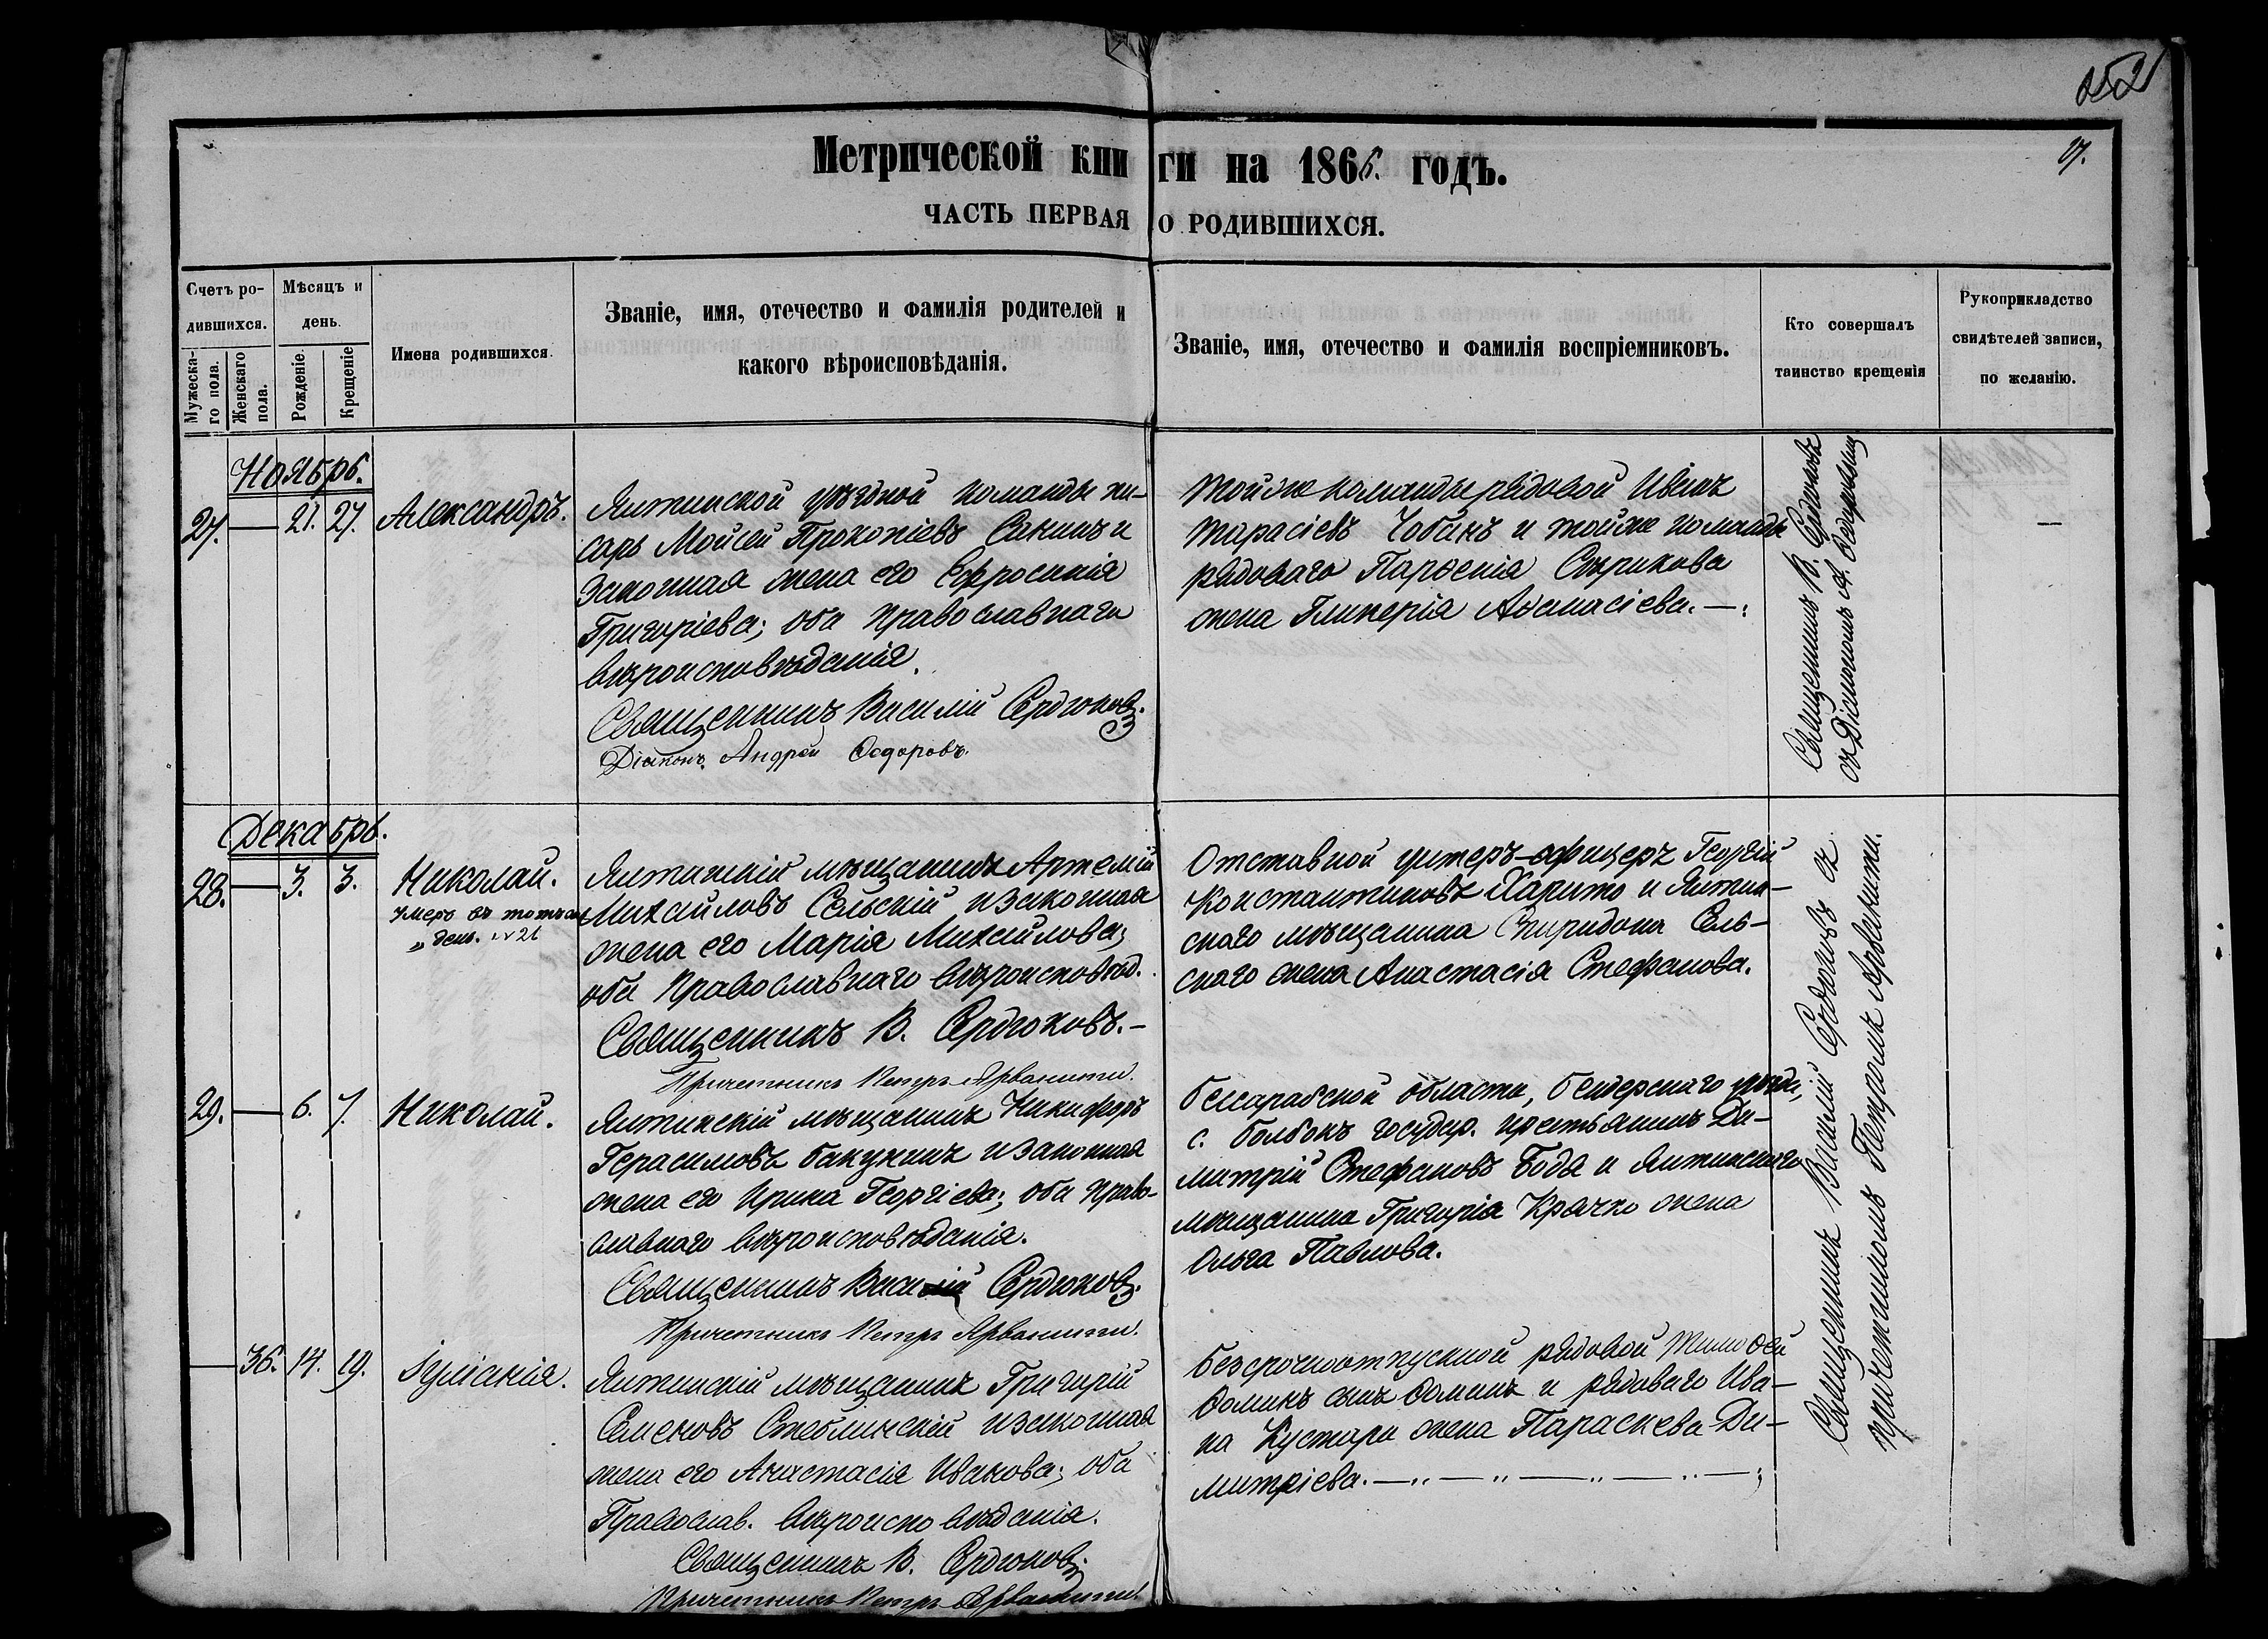 252
17.
Метрической книги на 1866. годъ.
ЧАСТЬ ПЕРВАЯ О РОДИВШИХСЯ.
Счетъ родившихся.
Мужескаго пола.
Женскаго пола.
Мѣсяцъ и день.
Рожденіе.
Крещеніе
Имена родившихся.
Званіе, имя, отечество и фамилія родителей и
какого вѣроисповѣданія.
Званіе, имя, отечество и фамилія воспріемниковъ.
Кто совершалъ
таинство крещенія
Рукоприкладство
свидѣтелей записи,
по желанію.
Ноябрь.
27. — 21. 27. Александръ.
Ялтинской уѣздной команды пи-
сарь Мойсей Прокопіевъ Санинъ и
законная жена его Ефросинія
Григоріева; оба православнаго
вѣроисповѣданія.
Священникъ Василій Сердюковъ.
Діаконъ Андрей Ѳедоровъ.
Той же команды рядовой Иванъ
Тарасіевъ Чобанъ и той же команды
рядоваго Парѳенія Сырикова
жена Гликерія Аѳанасіева. —:
Священникъ В. Сердюковъ
съ Діакономъ А. Ѳедоровымъ
—
Декабрь.
28. — 3. 3. Николай.
умеръ въ тотъ же
„ день. №21
Ялтинскій мѣщанинъ Артемій
Михайловъ Сельскій и законная
жена его Марія Михайлова;
оба православнаго вѣроисповѣд.
Священникъ В. Сердюковъ.—
Причетникъ Петръ Арванити.
Отставной унтеръ-офицеръ Георгій
Константиновъ Харито и Ялтин-
скаго мѣщанина Спиридона Сель-
скаго жена Анастасія Стефанова.
29. — 6. 7. Николай.
Ялтинскій мѣщанинъ Никифоръ
Герасимовъ Бакунинъ и законная
жена его Ирина Георгіева; оба право-
славнаго вѣроисповѣданія.
Священникъ Василій Сердюковъ.
Причетникъ Петръ Арванити.
Бессарабской области, Бендерскаго уѣзда,
с. Болбокъ госудр. крестьянинъ Ди-
митрій Стефановъ Бодя и Ялтинскаго
мѣщанина Григорія Крачко жена
Ольга Павлова.
— 36. 14. 19. Іуліанія.
Ялтинскій мѣщанинъ Григорій
Семеновъ Стеблинскій и законная
жена его Анастасія Иванова; оба
Православ. вѣроисповѣданія.
Священникъ В. Сердюковъ.
Причетникъ Петръ Арванити.
Безсрочноотпускной рядовой Тимоѳей
Ѳоминъ сынъ Ѳоминъ и рядоваго Ива-
на Кустара жена Параскева Ди-
митріева. — „ — „ — „ — „ — ;
Священникъ Василій Сердюковъ съ
причетникомъ Петромъ Арванити.